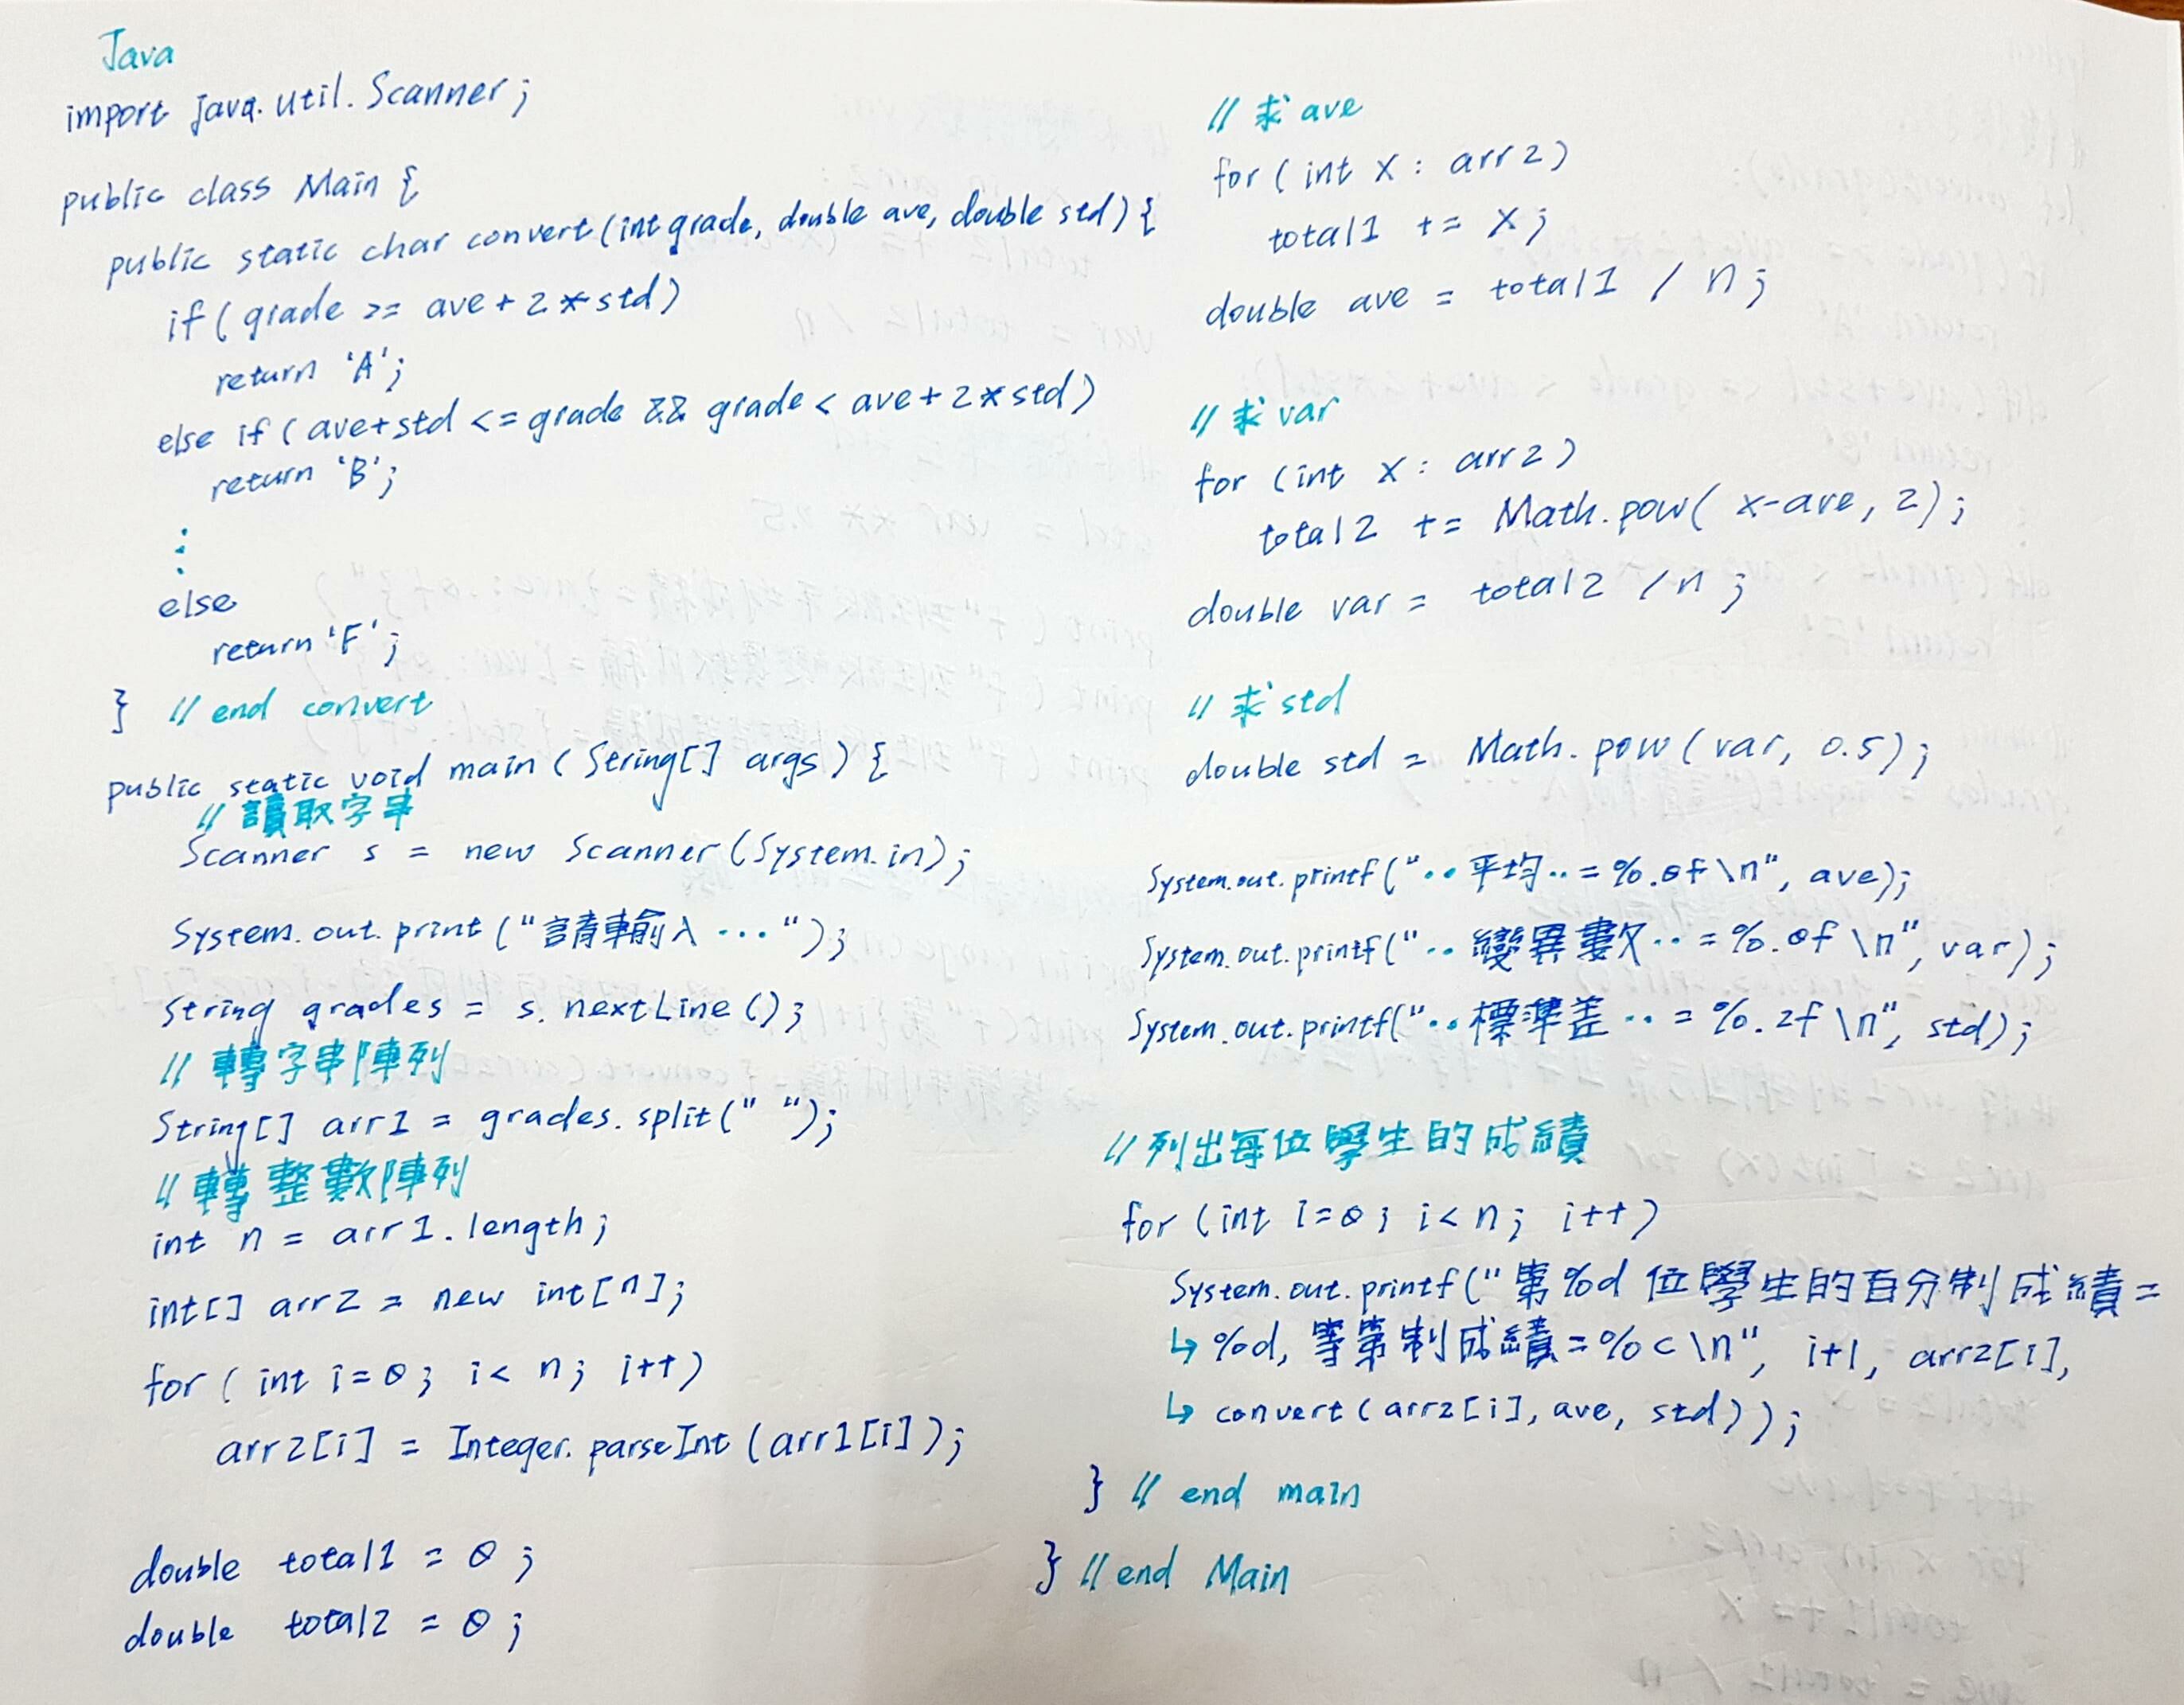 Java
import java.util.Scanner;
public class Main {
public static char convert(int grade, double ave, double std) {
if( grade >= ave + 2 * std)
return 'A';
else if ( ave+std <= grade && grade < ave + 2 * std)
return 'B';
⋮
else
return 'F';
} // end convert
public static void main ( String[] args ) {
// 讀取字串
Scanner s = new Scanner (System.in);
System.out.print ("請輸入 ...");
String grades = s.nextLine();
// 轉字串陣列
String[] arr1 = grades.split(" ");
// 轉整數陣列
int n = arr1.length;
int[] arr2 = new int[n];
for ( int i=0; i < n; i++)
arr2[i] = Integer.parseInt (arr1[i]);
double total1 = 0;
double total2 = 0;
// 求 ave
for ( int x : arr2)
total1 += x;
double ave = total1 / n;
// 求 var
for (int x : arr2)
total2 += Math.pow( x-ave, 2);
double var = total2 / n;
// 求 std
double std = Math.pow (var, 0.5);
System.out.printf(".. 平均.. = %.0f \n", ave);
System.out.printf(".. 變異數.. = %.0f \n", var);
System.out.printf(".. 標準差 .. = %.2f \n", std);
// 列出每位學生的成績
for (int i=0; i<n; i++)
System.out.printf("第%d 位學生的百分制成績=
↳ %d, 等第制成績=%c \n", i+1, arr2[i],
↳ convert (arr2[i], ave, std));
} // end main
} // end Main